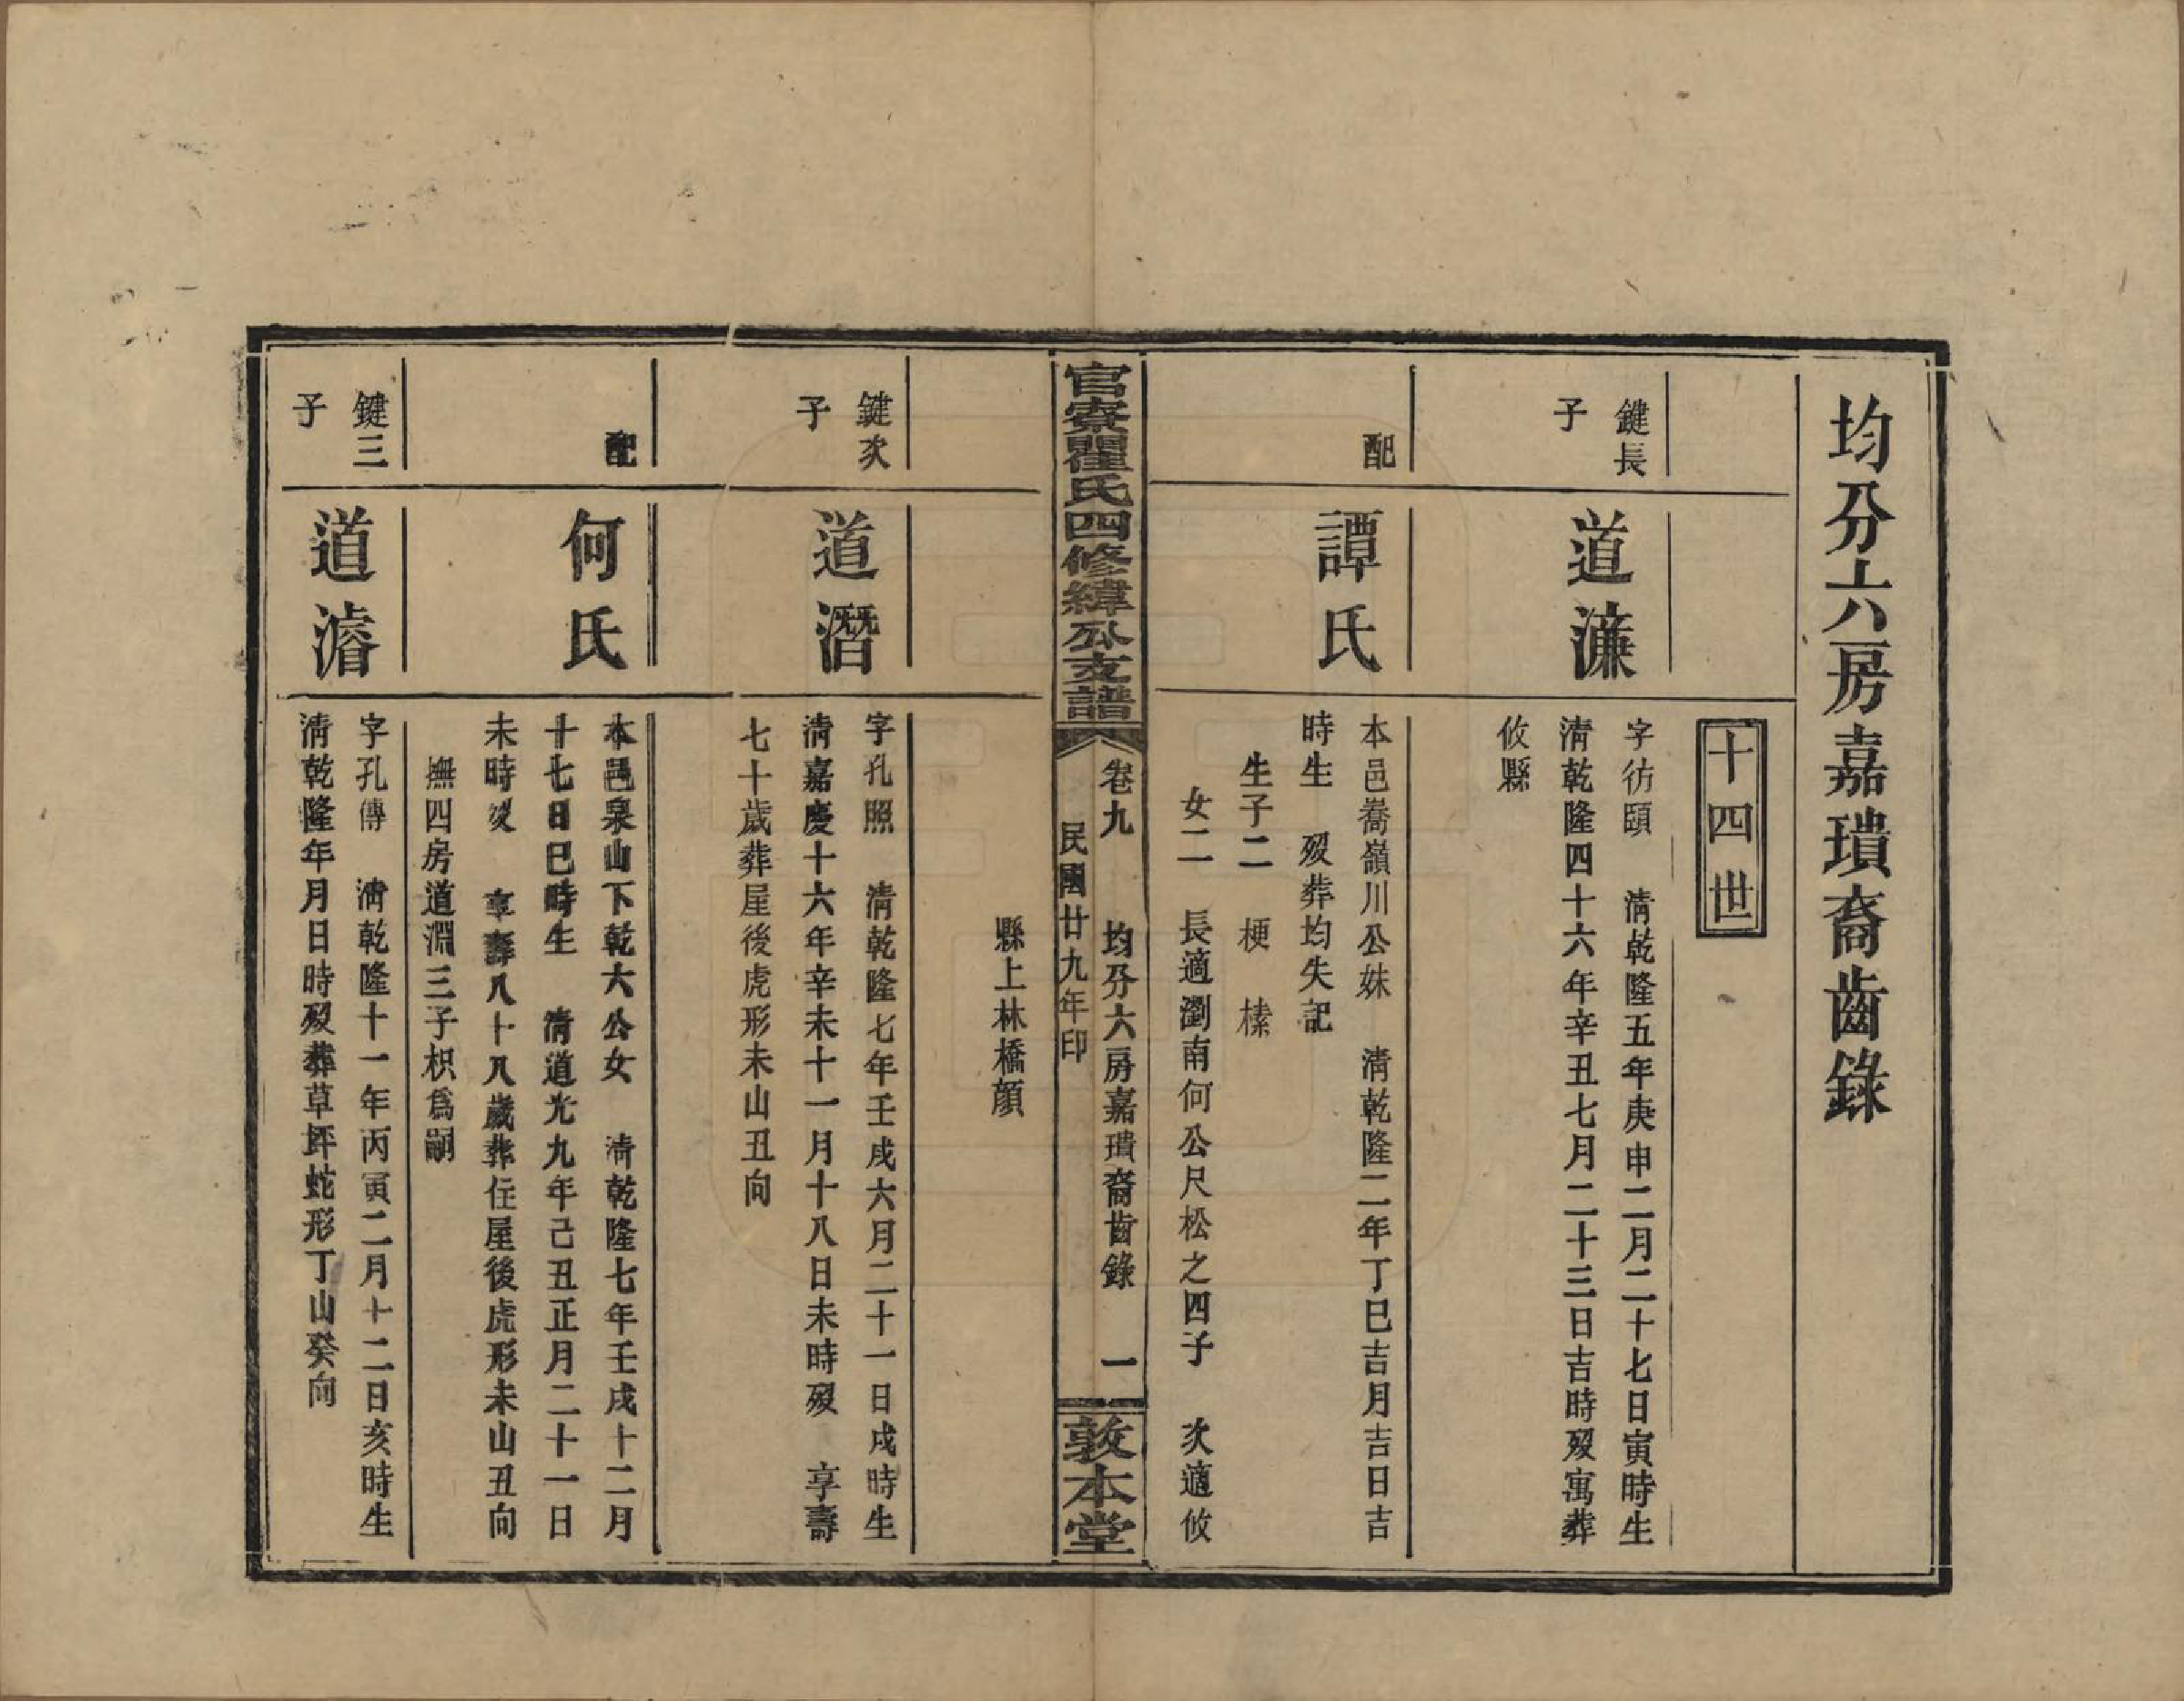 均分六房嘉璝裔齒錄
十四世
鍵長
子
道濂
字彷頤 清乾隆五年庚申二月二十七日寅時生
清乾隆四十六年辛丑七月二十三日吉時歿寓葬
攸縣
配
譚氏
本邑喬嶺川公妹 清乾隆二年丁巳吉月吉日吉
時生 歿葬均失記
生子二 梗 榡
女二 長適瀏南何公尺松之四子 次適攸
官寮瞿氏四修緯公支譜
卷九 均分六房嘉璝裔齒錄 一
民國廿九年印
敦本堂
縣上林橋顏
鍵次
子
道潛
字孔照 清乾隆七年壬戌六月二十一日戌時生
清嘉慶十六年辛未十一月十八日未時歿 享壽
七十歲葬屋後虎形未山丑向
配
何氏
本邑泉山下乾大公女 清乾隆七年壬戌十二月
十七日巳時生 清道光九年己丑正月二十一日
未時歿 享壽八十八歲葬住屋後虎形未山丑向
撫四房道淵三子枳爲嗣
鍵三
子
道濬
字孔傳 清乾隆十一年丙寅二月十二日亥時生
清乾隆年月日時歿葬草坪蛇形丁山癸向